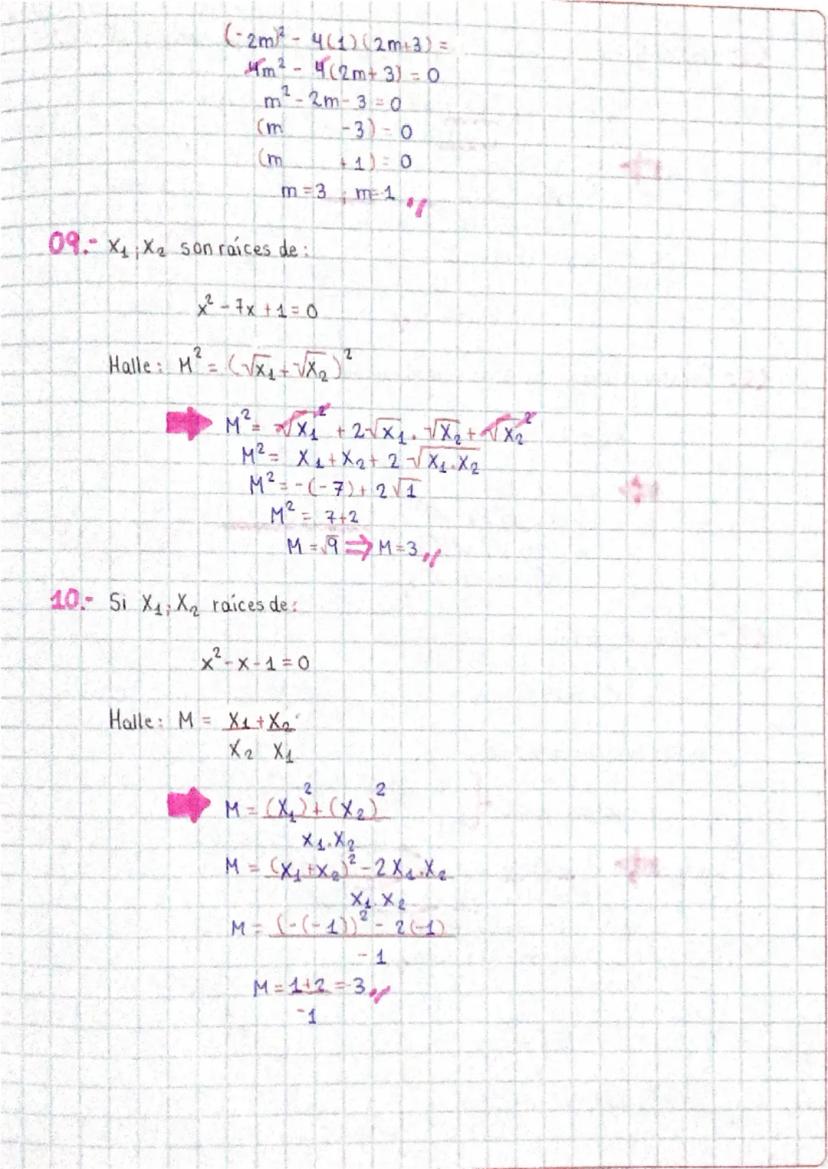 (-2m)² - 4(1)(2m+3) =
4m² - 4(2m+3) = 0
m² - 2m - 3 = 0
(m -3) = 0
(m +1) = 0
m = 3 ; m=-1
09.- X₁ ; X₂ son raíces de:
x² - 7x + 1 = 0
Halle: M² = (√x₁ + √x₂)²
M² = √x₁² + 2√x₁ . √x₂ + √x₂²
M² = x₁ + x₂ + 2 √x₁.x₂
M² = -(-7) + 2√1
M² = 7+2
M = √9 ⇒ M = 3
10.- Si X₁ ; X₂ raíces de:
x² - x - 1 = 0
Halle: M = X₁ + X₂
X₂ X₁
M = (X₁)² + (X₂)²
X₁.X₂
M = (X₁+X₂)² - 2X₁.X₂
X₁.X₂
M = (-(-1))² - 2(-1)
-1
M = 1+2 = -3
-1